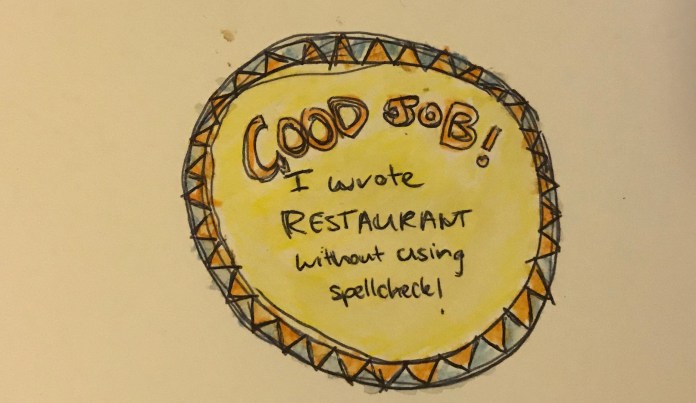 GOOD JOB!
I wrote
RESTAURANT
without using
spellcheck!